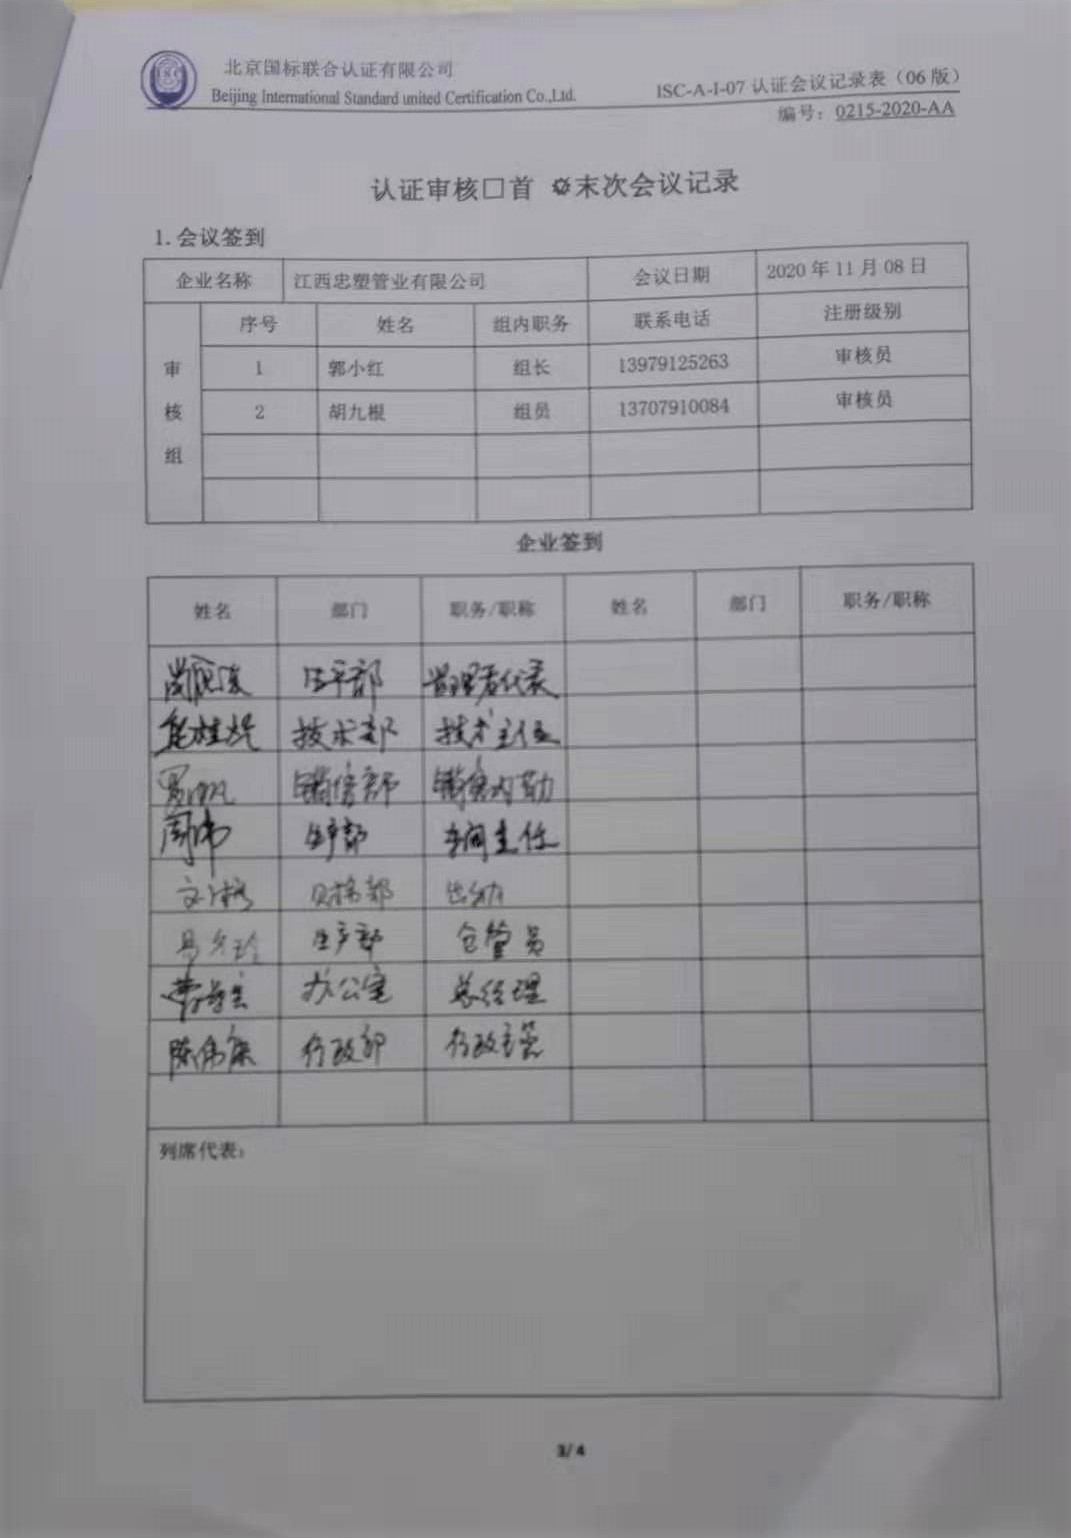 北京国标联合认证有限公司
Beijing International Standard united Certification Co.,Ltd.
ISC-A-I-07 认证会议记录表（06 版）
编号：0215-2020-AA
认证审核□首 末次会议记录
1. 会议签到
企业名称 江西忠塑管业有限公司 会议日期 2020 年 11 月 08 日
审核组
序号 姓名 组内职务 联系电话 注册级别
1 郭小红 组长 13979125263 审核员
2 胡九根 组员 13707910084 审核员
企业签到
姓名 部门 职务/职称 姓名 部门 职务/职称
管理者代表
技术部 技术主任
销售部 销售内勤
周伟 生产部 车间主任
财务部 出纳
生产部 仓管员
办公室 总经理
行政部 行政主管
列席代表：
3/4